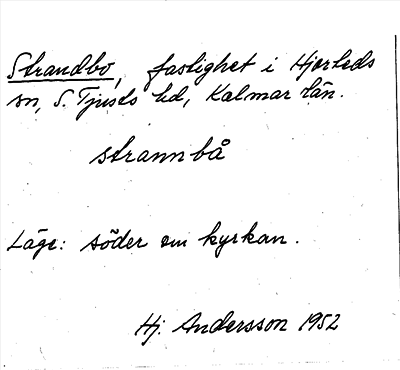 Strandbo, fastighet i Hjorteds
sn, S. Tjusts hd, Kalmar län.
strannbå
Läge: söder om kyrkan.
Hj. Andersson 1952